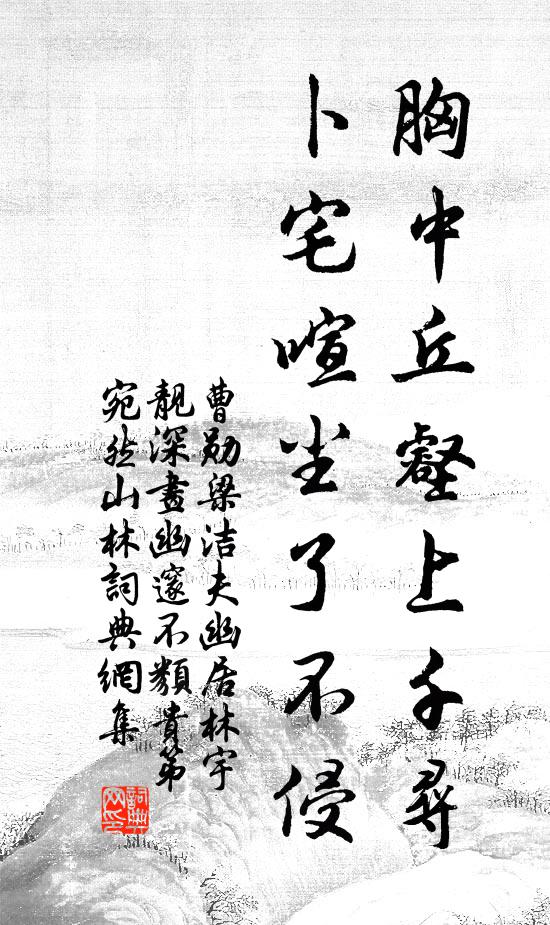 胸中丘壑上千尋
卜宅喧尘了不侵
曹勛梁洁夫幽居林宇
靓深畫幽邃不類貴第
宛然山林詞典網集